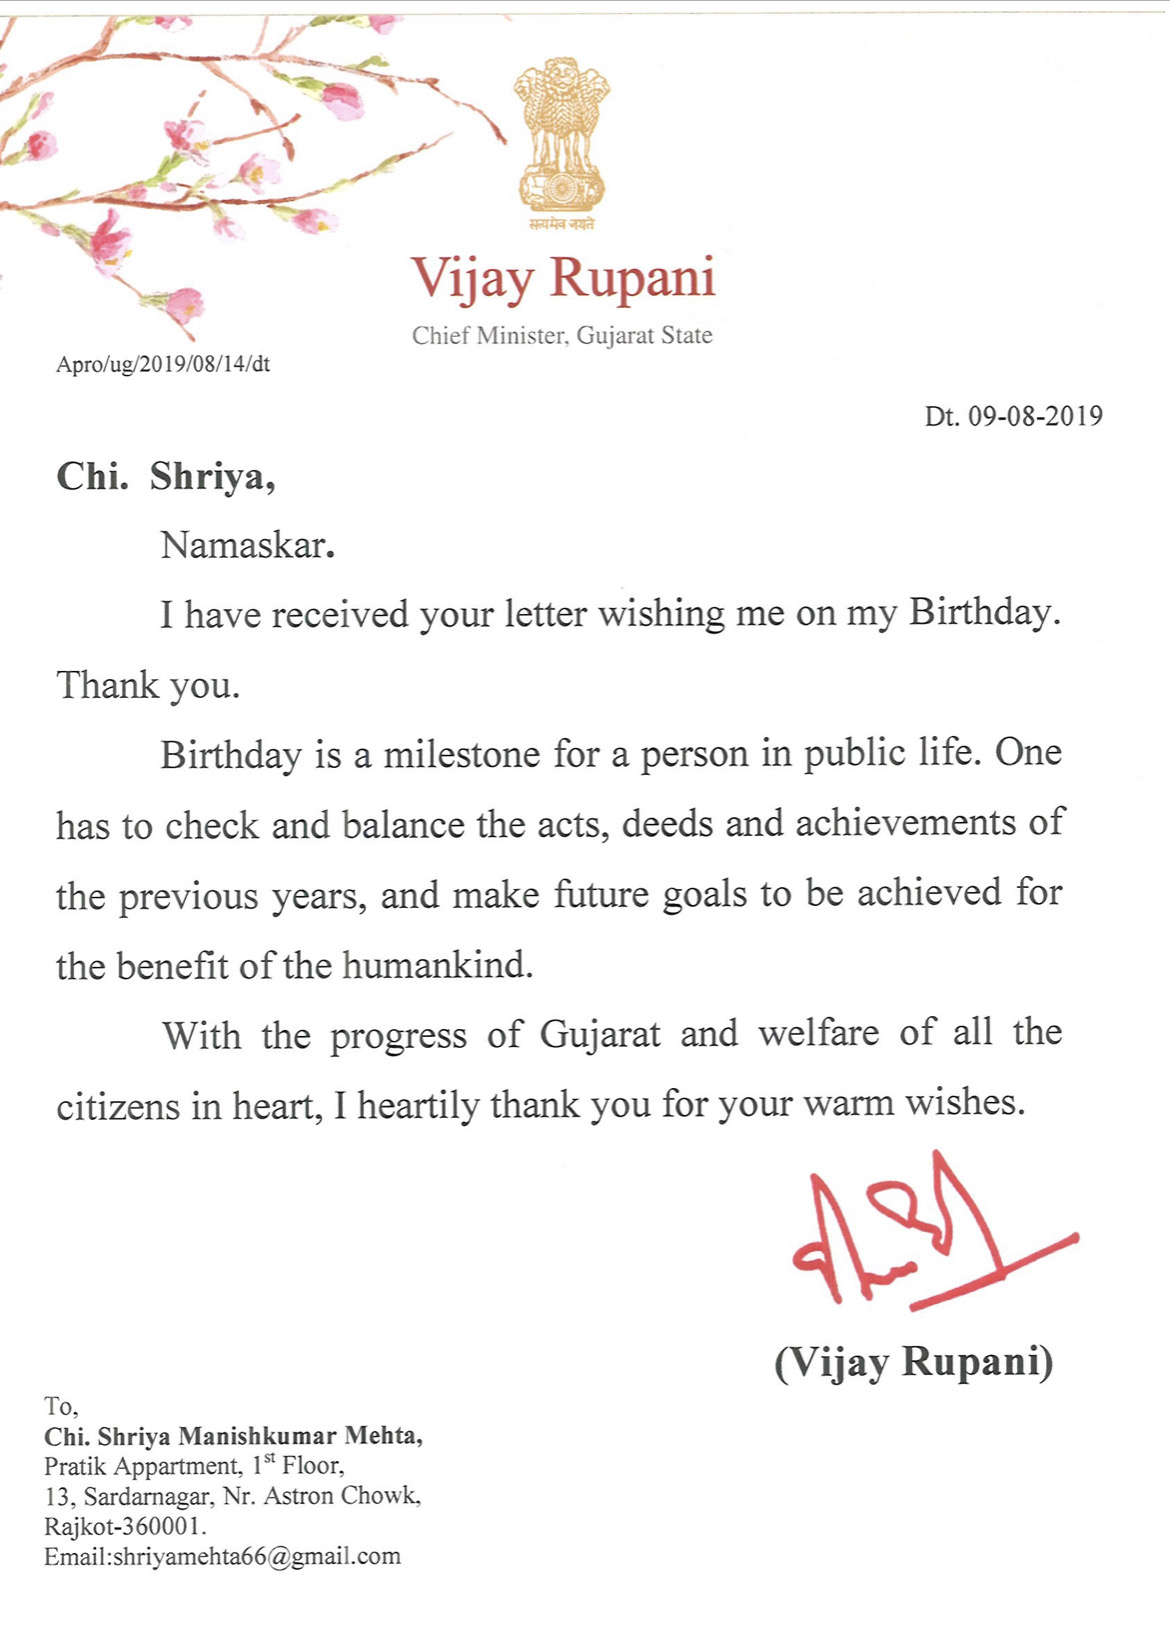 सत्यमेव जयते
Vijay Rupani
Chief Minister, Gujarat State
Apro/ug/2019/08/14/dt
Dt. 09-08-2019
Chi. Shriya,
Namaskar.
I have received your letter wishing me on my Birthday.
Thank you.
Birthday is a milestone for a person in public life. One
has to check and balance the acts, deeds and achievements of
the previous years, and make future goals to be achieved for
the benefit of the humankind.
With the progress of Gujarat and welfare of all the
citizens in heart, I heartily thank you for your warm wishes.
(Vijay Rupani)
To,
Chi. Shriya Manishkumar Mehta,
Pratik Appartment, 1st Floor,
13, Sardarnagar, Nr. Astron Chowk,
Rajkot-360001.
Email:shriyamehta66@gmail.com